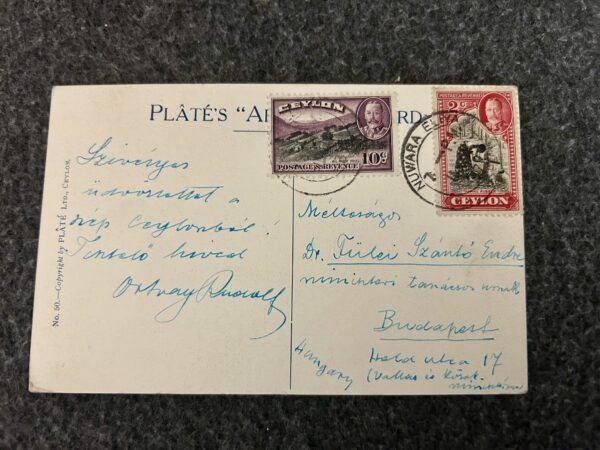 PLÂTÉ'S "AR
RD
CEYLON
10c
POSTAGE & REVENUE
POSTAGE & REVENUE
2c
CEYLON
NUWARA ELIYA
Szivélyes
üdvözlettel a
szép Ceylonból!
Tisztelő híved
Ortvay Rudolf
No. 50.—Copyright by PLÂTÉ LTD., CEYLON.
Méltóságos
Dr. Fülei Szántó Endre
miniszteri tanácsos urnak
Budapest
Hold utca 17
(Vallás és Közok.
Hungary